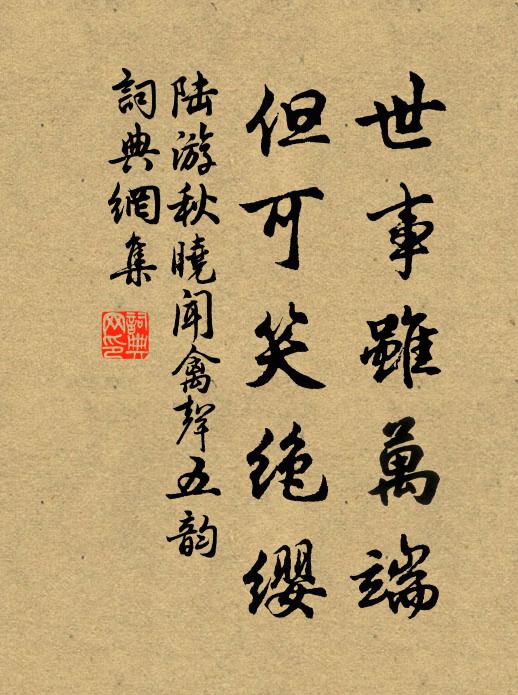 世事雖萬端
但可笑絶纓
陆游秋曉聞禽聲五韵
詞典網集
詞典
网印